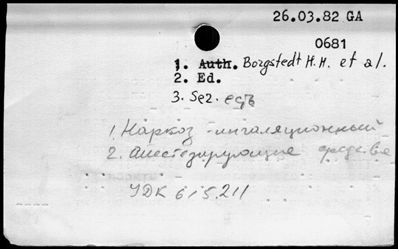 26.03.82 GA
0681
1. Auth. Borgstedt H.H. et al.
2. Ed.
3. Sez.
1. Наркоз ингаляционный
2. Анестезирующие средства
УДК 615.211